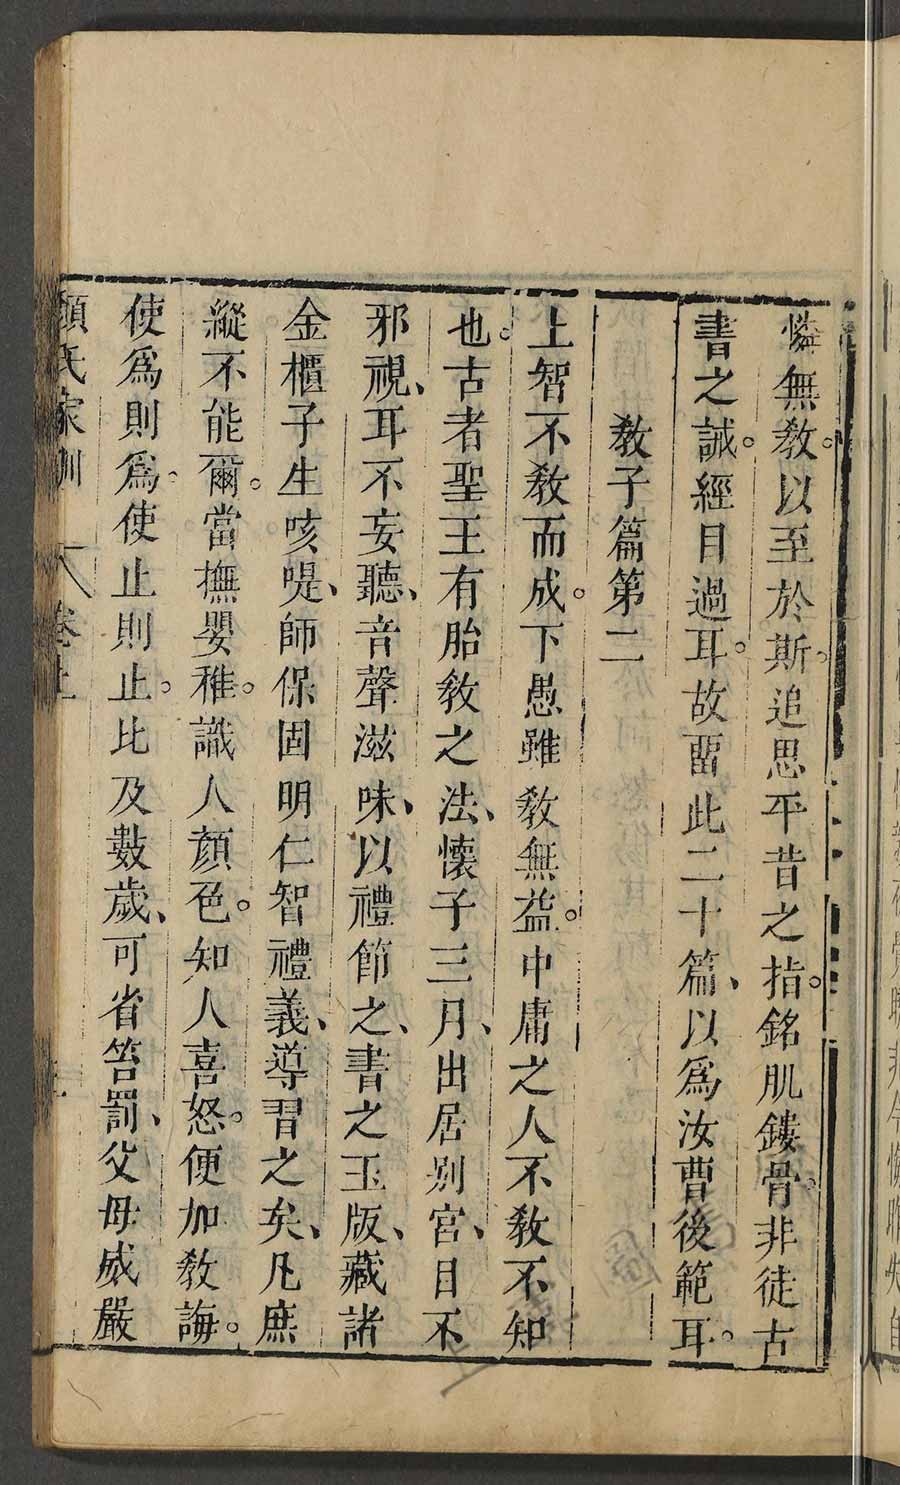 憐無敎。以至於斯。追思平昔之指。銘肌鏤骨。非徒古
書之誡。經目過耳。故畱此二十篇、以爲汝曹後範耳。
敎子篇第二
上智不敎而成。下愚雖敎無益。中庸之人不敎不知
也。古者聖王有胎敎之法、懷子三月、出居別宮、目不
邪視、耳不妄聽、音聲滋味、以禮節之、書之玉版、藏諸
金櫃子生咳㖷、師保固明仁智禮義、導習之矣、凡庶
縱不能爾。當撫嬰稚。識人顏色。知人喜怒。便加敎誨。
使爲則爲。使止則止。比及數歲、可省笞罰、父母威嚴
顏氏家訓 卷上